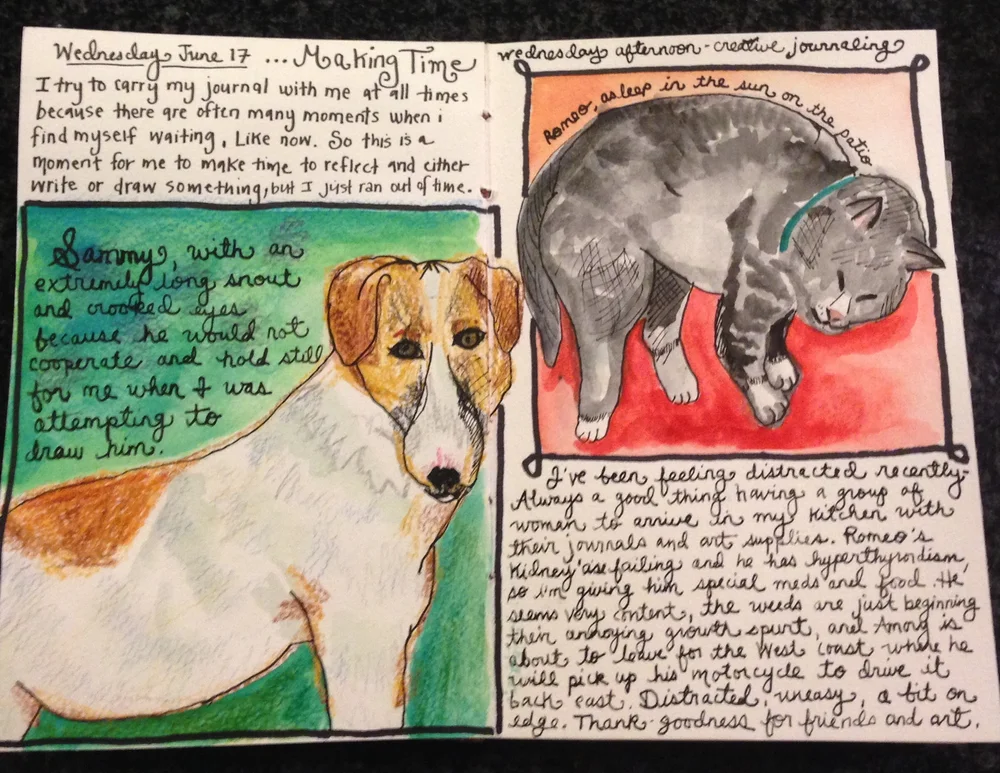 Wednesday June 17 ... Making Time
I try to carry my journal with me at all times
because there are often many moments when i
find myself waiting. Like now. So this is a
moment for me to make time to reflect and either
write or draw something, but I just ran out of time.
Sammy, with an
extremely long snout
and crooked eyes
because he would not
cooperate and hold still
for me when I was
attempting to
draw him.
wednesday afternoon - creative journaling
Romeo, asleep in the sun on the patio
I've been feeling distracted recently-
Always a good thing having a group of
woman to arrive in my kitchen with
their journals and art supplies. Romeo's
Kidney failing and he has
so i'm giving him special meds and food. He
seems very content, the weeds are just beginning
their annoying growth spurt, and is
about to leave for the West coast where he
will pick up his motorcycle to drive it
back east. Distracted, uneasy, a bit on
edge. Thank-goodness for friends and art.